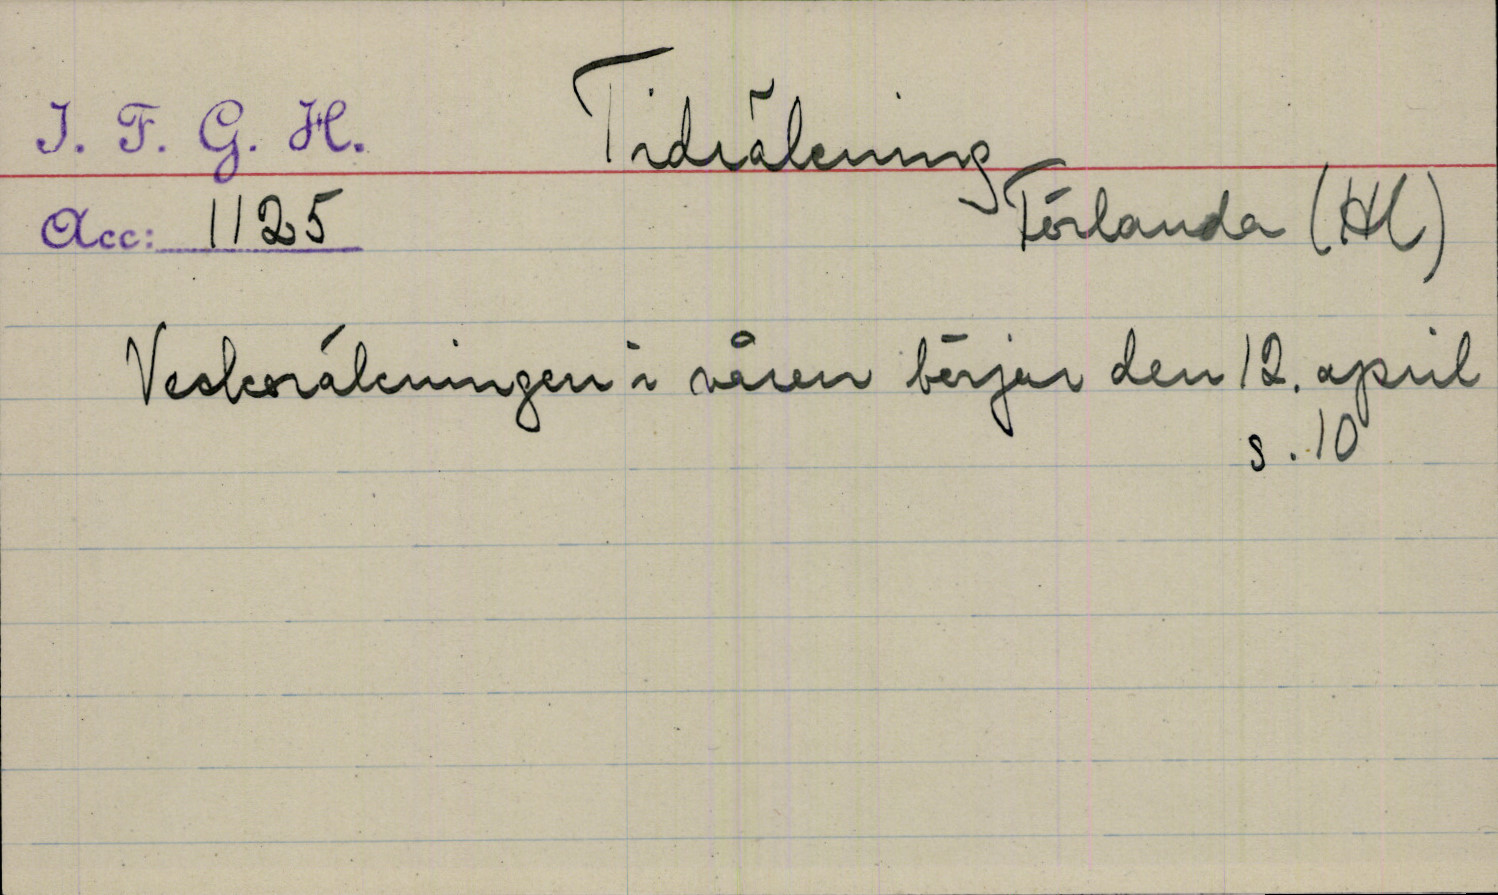 I. F. G. H.
Tidräkning
Acc: 1125
Förlanda (Hl)
Veckoräkningen i våren börjar den 12. april
s. 10